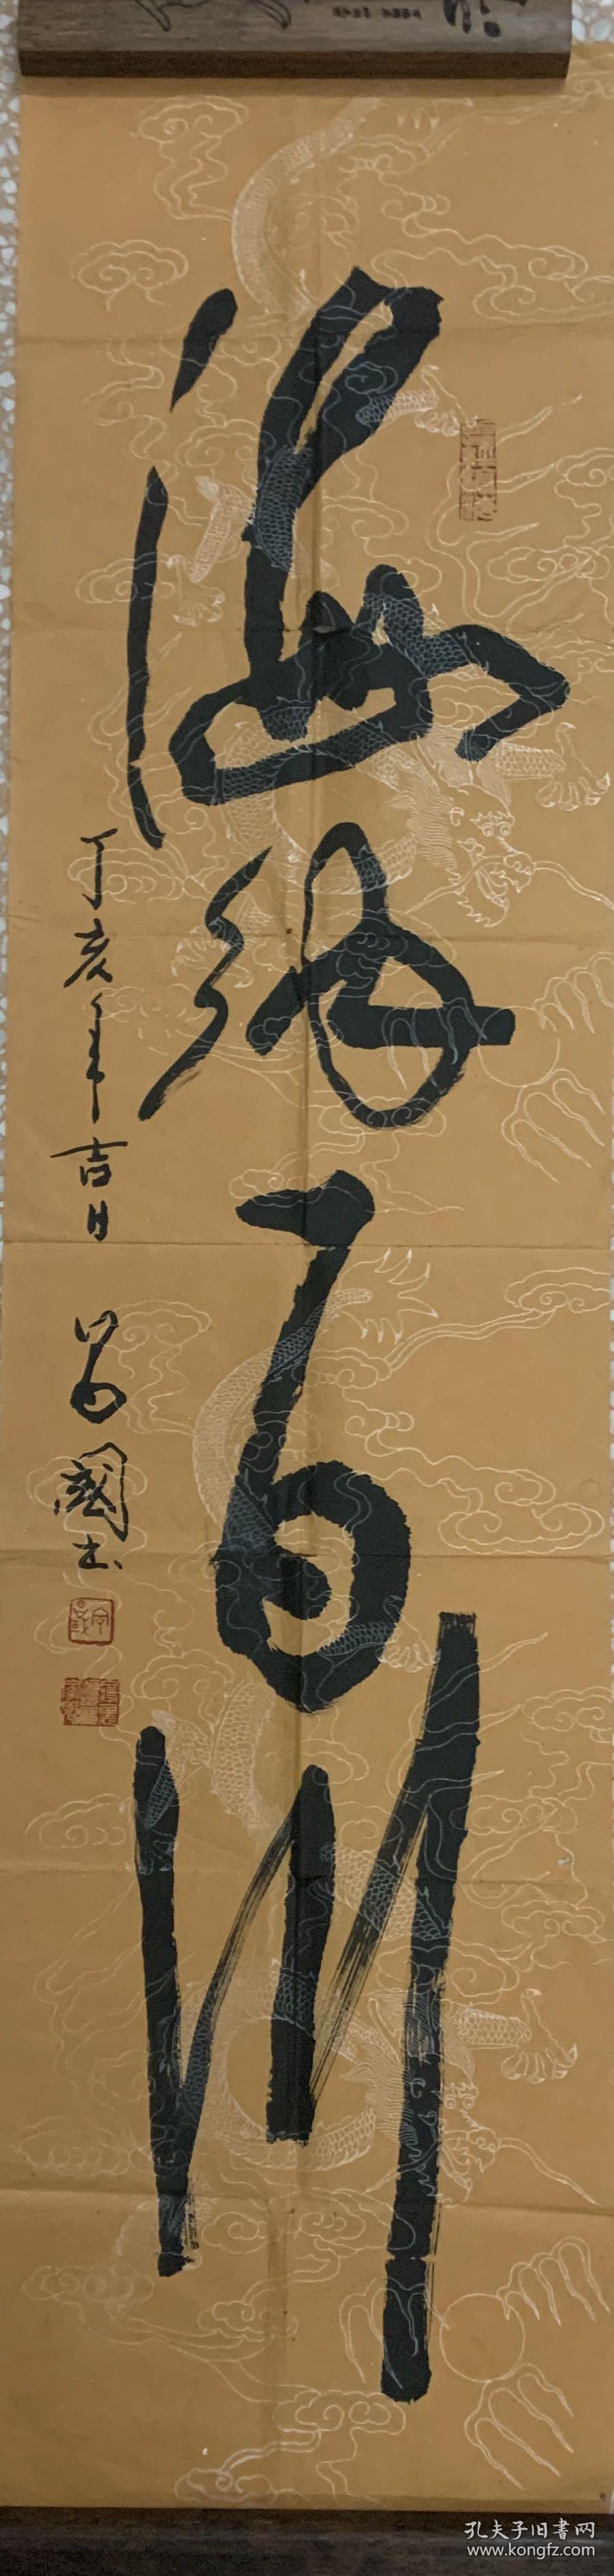 海纳百川
丁亥年吉日
國书
孔夫子旧書网
www.kongfz.com